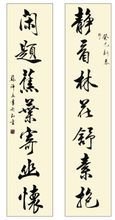 静看林花舒素抱
闲题蕉叶寄幽怀